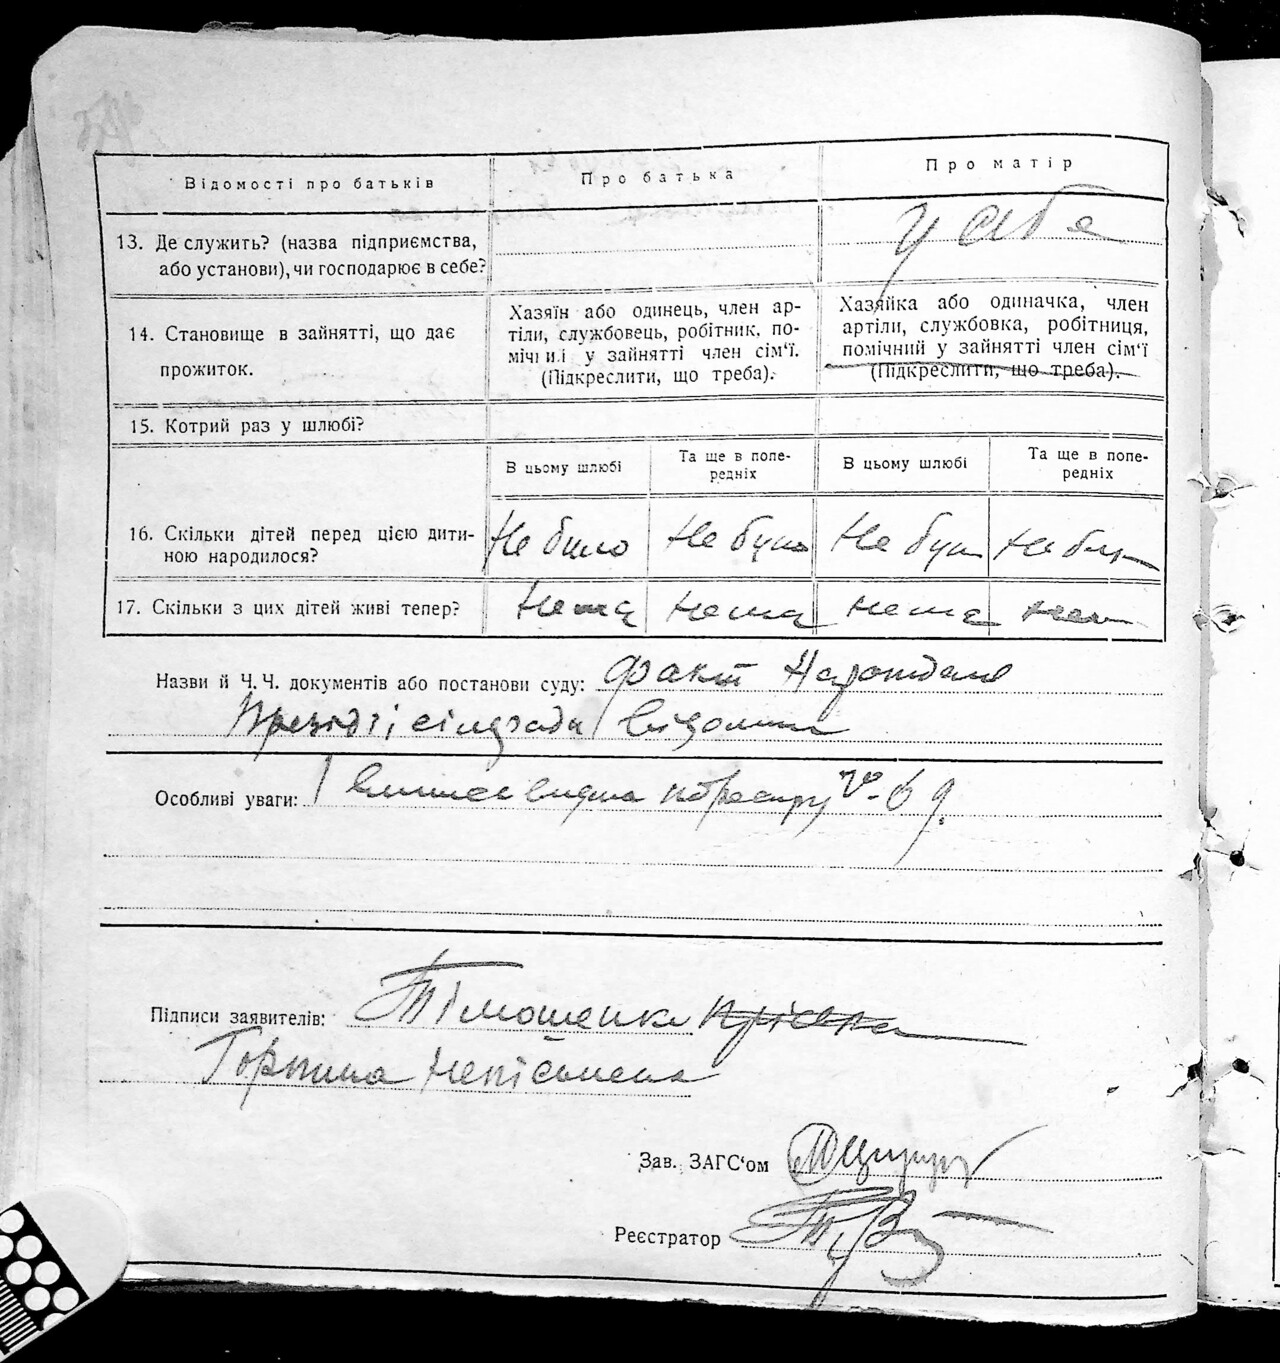 Відомості про батьків
Про батька
Про матір
13. Де служить? (назва підприємства,
або установи), чи господарює в себе?
у себе
14. Становище в зайнятті, що дає
прожиток.
Хазяїн або одинець, член ар-
тіли, службовець, робітник, по-
мічний у зайнятті член сім‘ї.
(Підкреслити, що треба).
Хазяйка або одиначка, член
артіли, службовка, робітниця,
помічний у зайнятті член сім‘ї
(Підкреслити, що треба).
15. Котрий раз у шлюбі?
В цьому шлюбі
Та ще в попе-
редніх
В цьому шлюбі
Та ще в попе-
редніх
16. Скільки дітей перед цією дити-
ною народилося?
Не було
Не було
Не було
Не було
17. Скільки з цих дітей живі тепер?
Нема
Нема
нема
нема
Назви й Ч.Ч. документів або постанови суду: Факт Народженя
Презідії сілради відомий
Особливі уваги:
Підписи заявителів: Тімошенко
Горпина Непісьмена
Зав. ЗАГС‘ом
Реєстратор